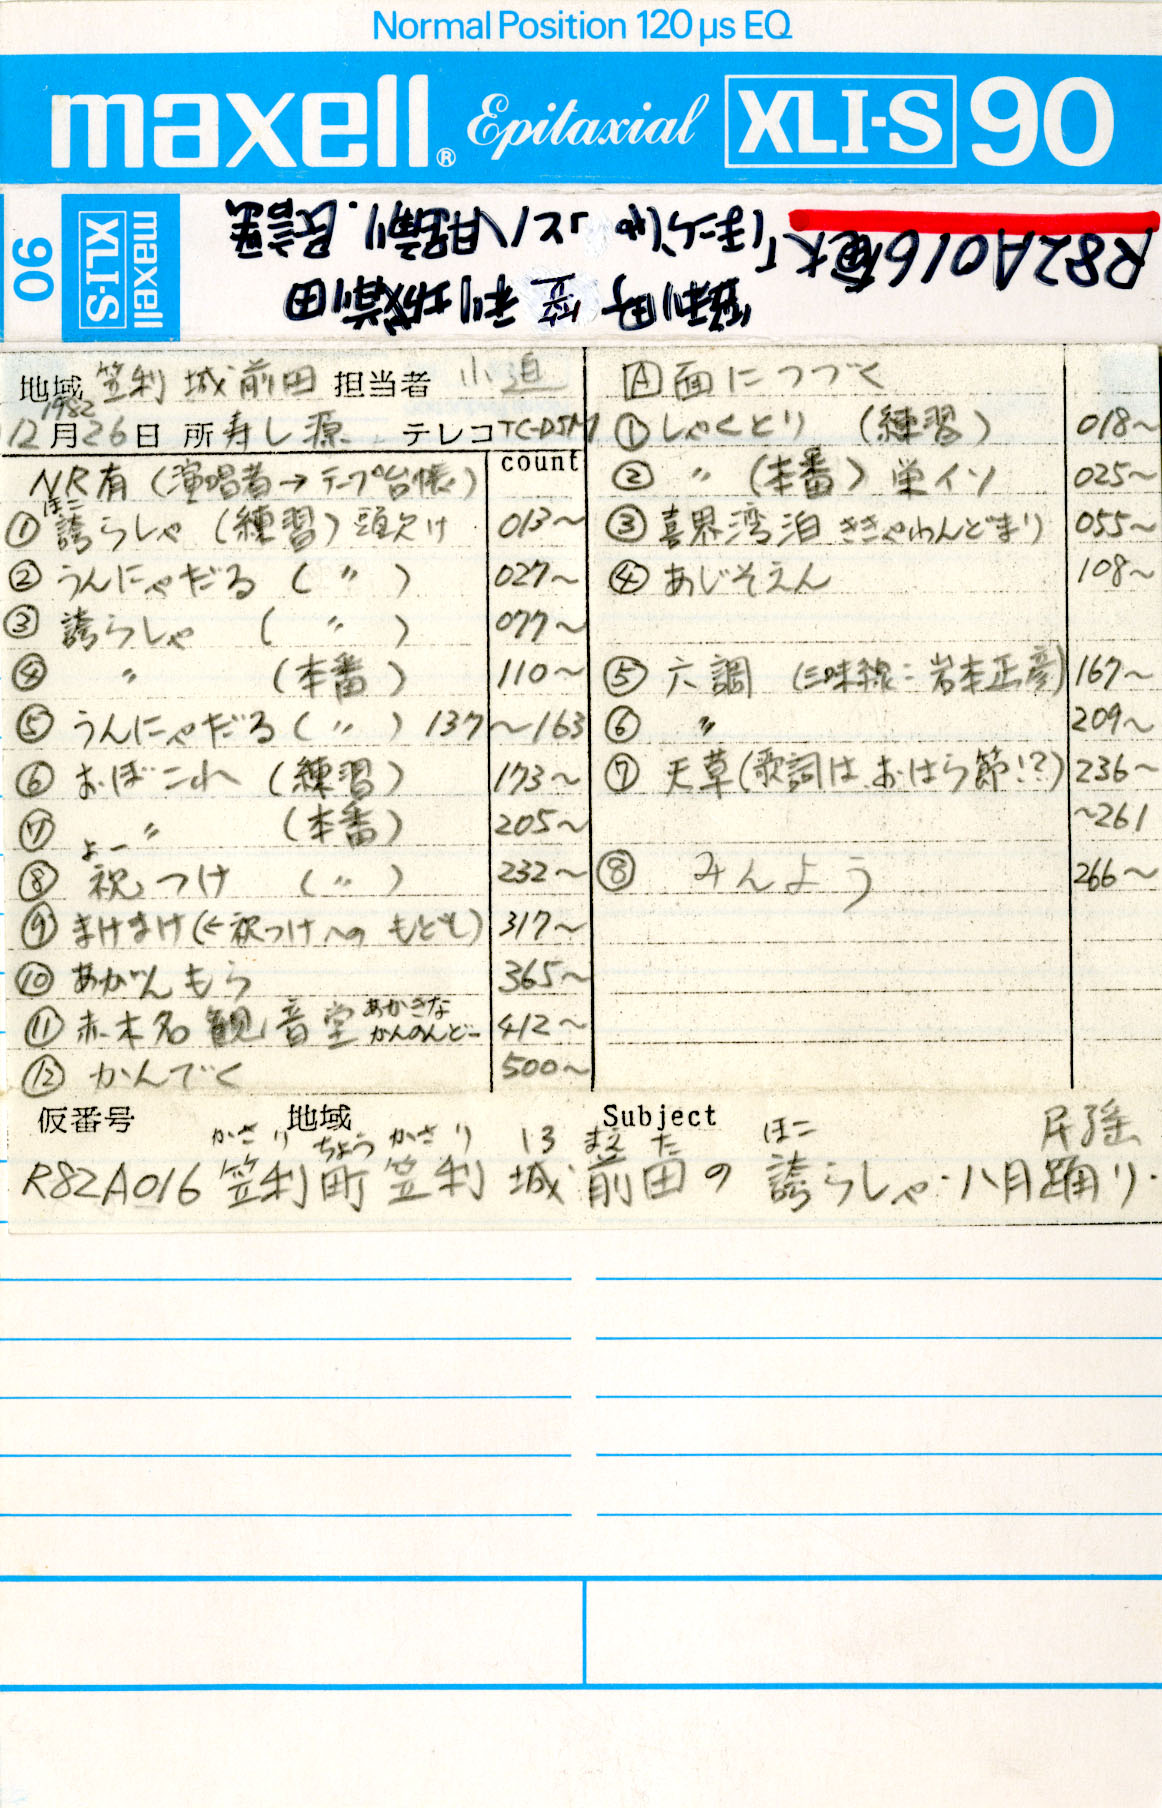 Normal Position 120 μs EQ
maxell® Epitaxial XLI-S 90
90 XLI-S maxell
R82A016 奄大
笠利町 笠利 城前田
「ほこらしゃ」と八月踊り・民謡
地域 笠利 城 前田 担当者 小迫
1982
12月26日 所 寿し源 テレコ TC-D5M
count
NR有 (演唱者→テープ台帳)
ほこ
① 誇らしゃ (練習) 頭欠け 013〜
② うんにゃだる ( 〃 ) 027〜
③ 誇らしゃ ( 〃 ) 077〜
④ 〃 (本番) 110〜
⑤ うんにゃだる ( 〃 ) 137〜163
⑥ おぼこれ (練習) 173〜
⑦ 〃 (本番) 205〜
よー
⑧ 祝つけ ( 〃 ) 232〜
⑨ まけまけ (←祝つけへの もども) 317〜
⑩ あがんもら 365〜
⑪ 赤木名 観音堂 あかきな かんのんどー 412〜
⑫ かんでく 500〜
A面につづく
① しゃくとり (練習) 018〜
② 〃 (本番) 栄イソ 025〜
③ 喜界湾泊 ききゃわんどまり 055〜
④ あじそえん 108〜
⑤ 六調 (三味線:岩本正彦) 167〜
⑥ 〃 209〜
⑦ 天草 (歌詞は、おはら節!?) 236〜
〜261
⑧ みんよう 266〜
仮番号 地域 Subject
かさり ちょう かさり 13 まえ た ほこ
R82A016 笠利町 笠利 城 前田の 誇らしゃ・八月踊り・民謡